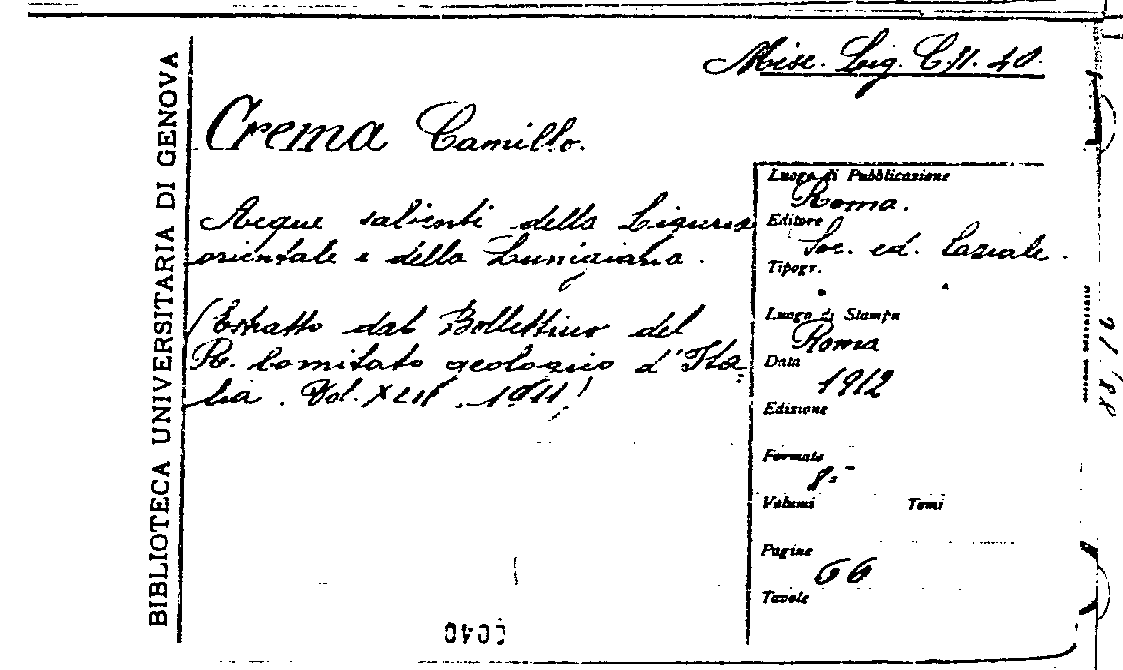 BIBLIOTECA UNIVERSITARIA DI GENOVA
Misc. Lig. C. 11. 40.
Crema Camillo.
Acque salienti della Liguria
orientale e della Lunigiana.
(Estratto dal Bollettino del
R. Comitato geologico d'Ita=
lia. Vol. XLII, 1911)
Luogo di Pubblicazione
Roma.
Editore
Soc. ed. Laziale.
Tipogr.
Luogo di Stampa
Roma
Data
1912
Edizione
Formato
8.
Volumi Tomi
Pagine
66
Tavole